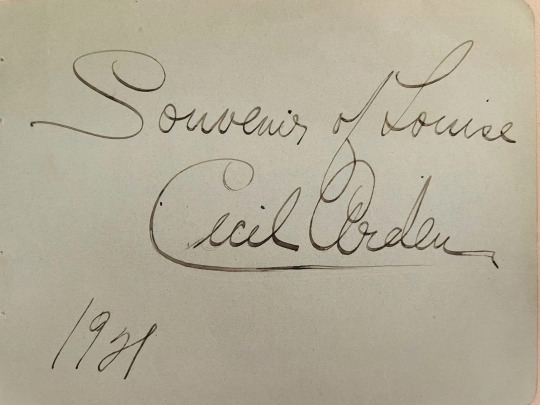 Souvenir of Louise
Cecil Arden
1921